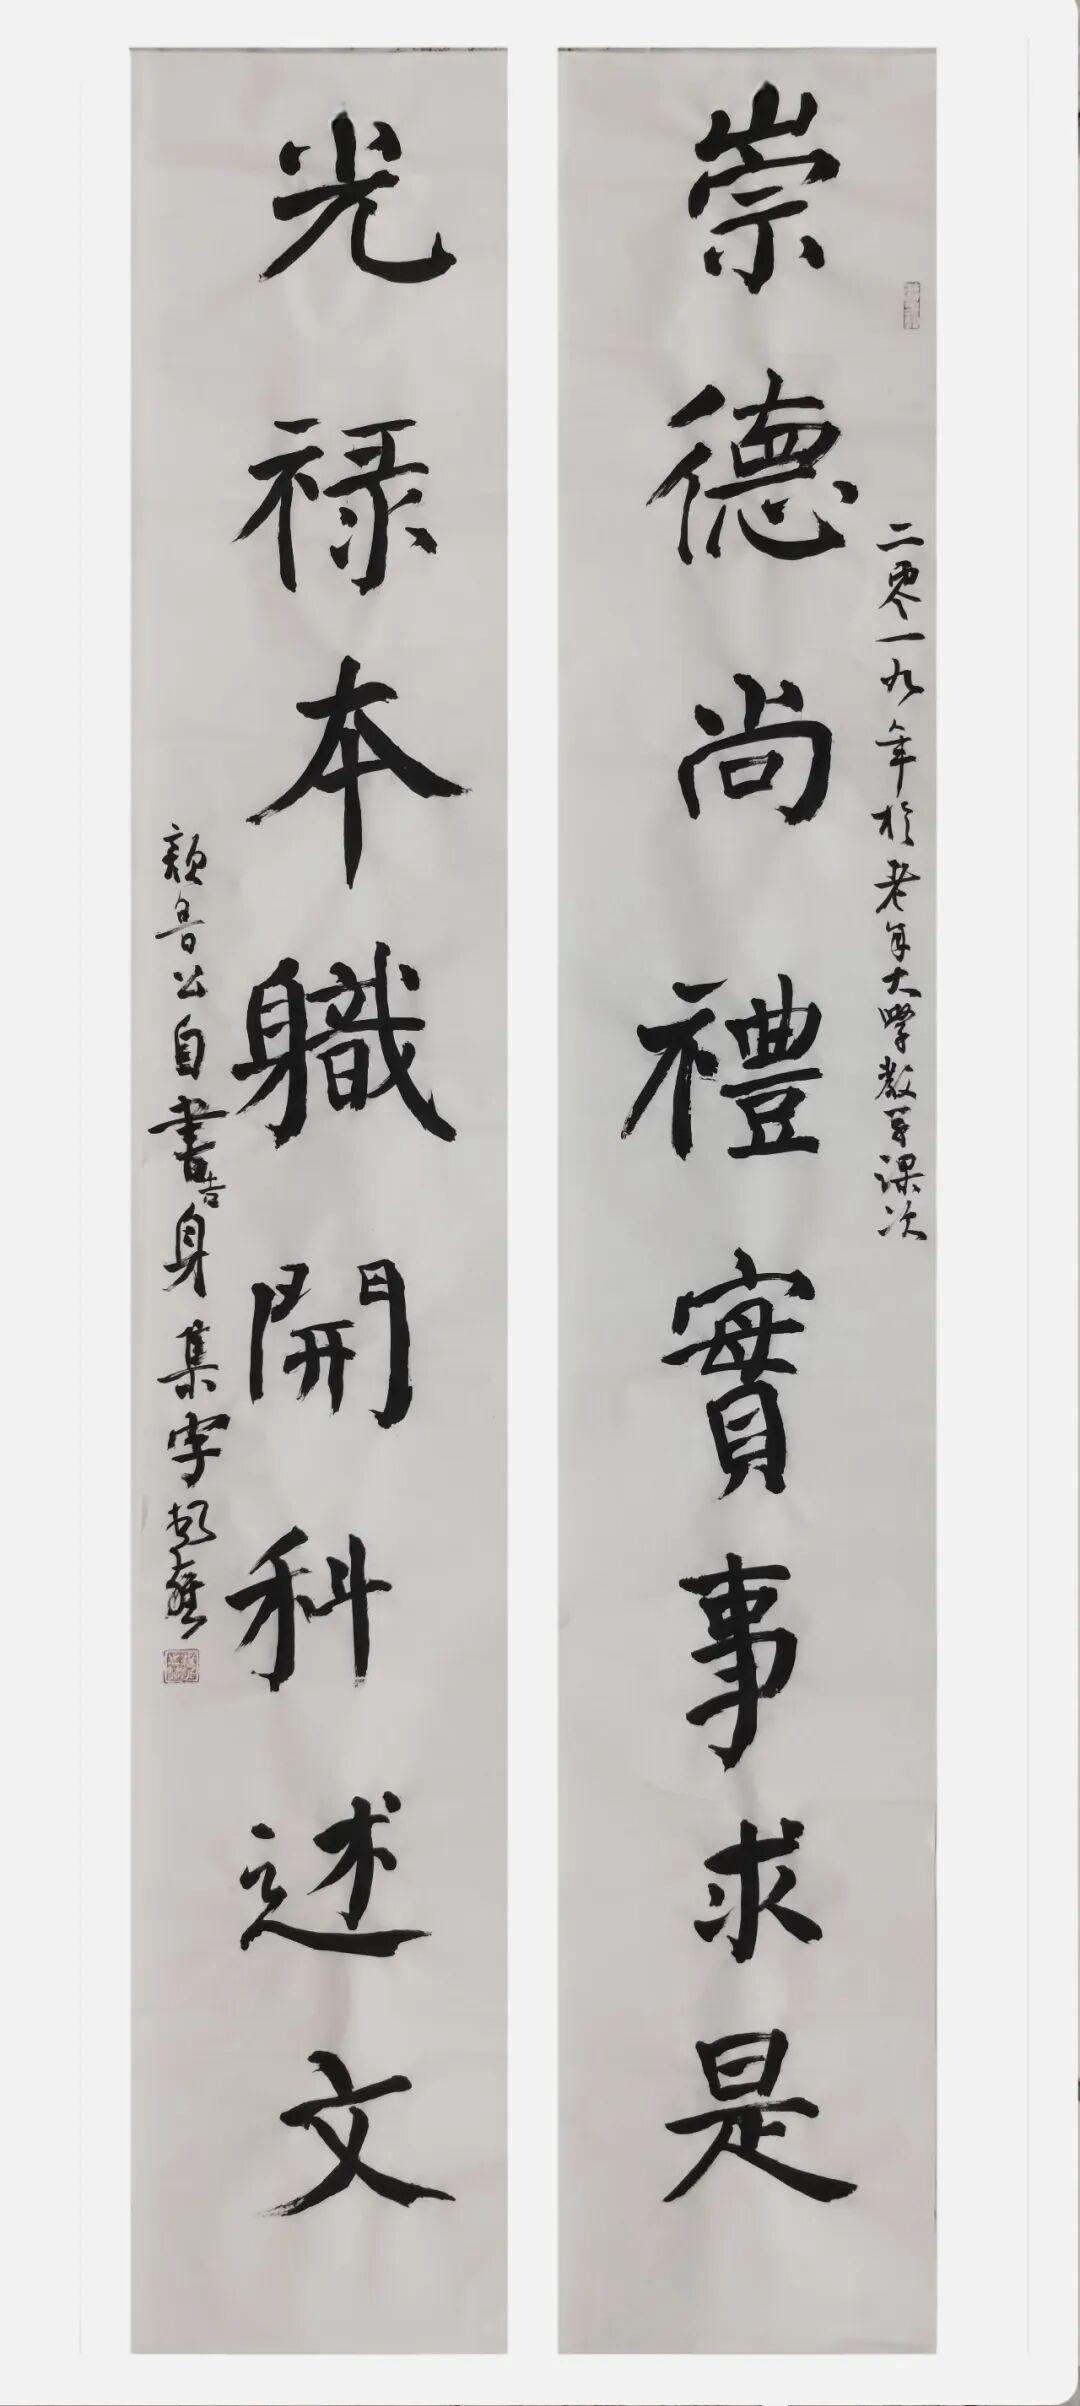 崇德尚禮實事求是
二零一九年於老年大學教學課次
光祿本職開科述文
顏魯公自書告身集字